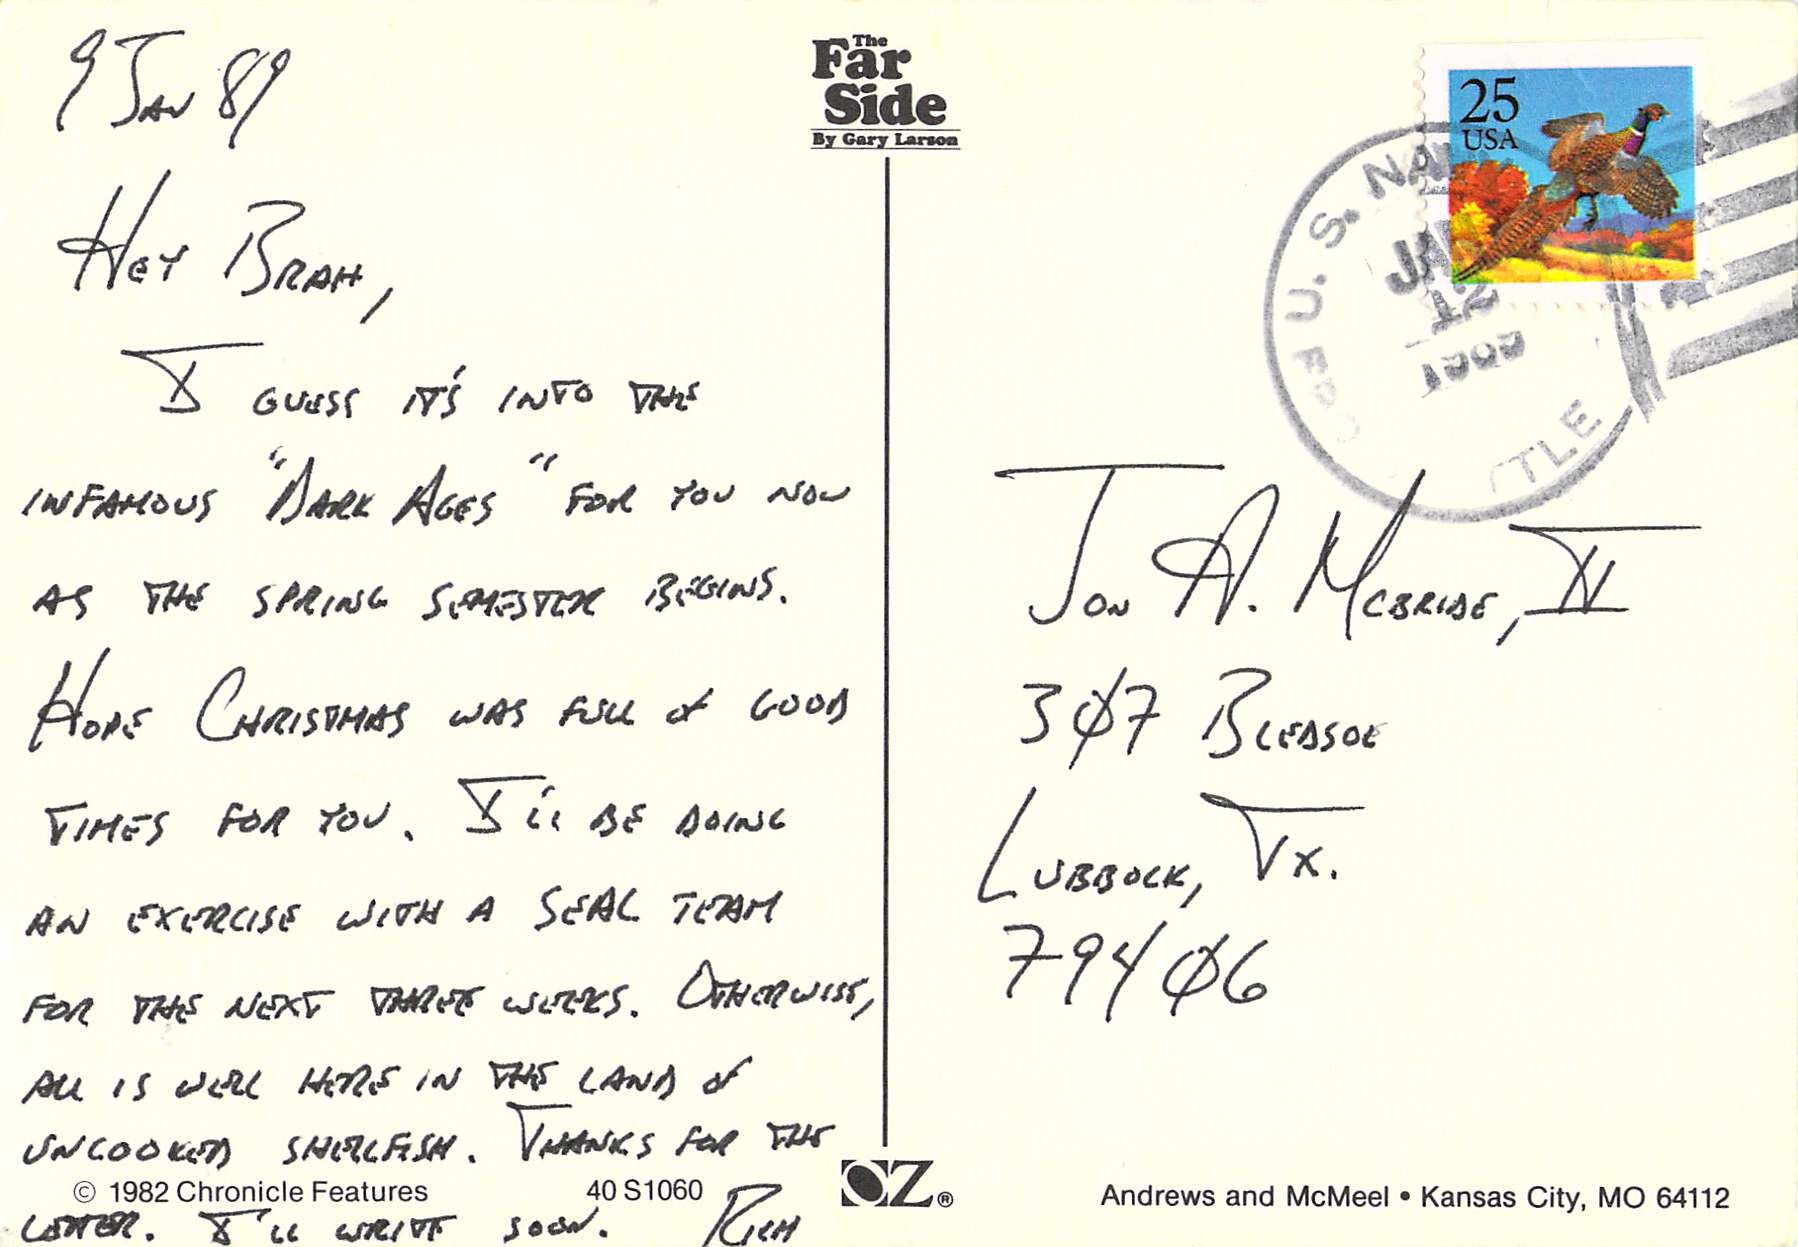 9 Jan 89
Hey Brah,
I guess it's into the
infamous "Dark Ages" for you now
as the spring semester begins.
Hope Christmas was full of good
times for you. I'll be doing
an exercise with a SEAL team
for the next three weeks. Otherwise,
all is well here in the land of
uncooked shellfish. Thanks for the
letter. I'll write soon. Rich
© 1982 Chronicle Features
40 S1060
The
Far
Side
By Gary Larson
OZ®
25
USA
U. S. NA
JA
12
1989
TLE
Jon A. McBride, II
307 Bledsoe
Lubbock, Tx.
79406
Andrews and McMeel • Kansas City, MO 64112